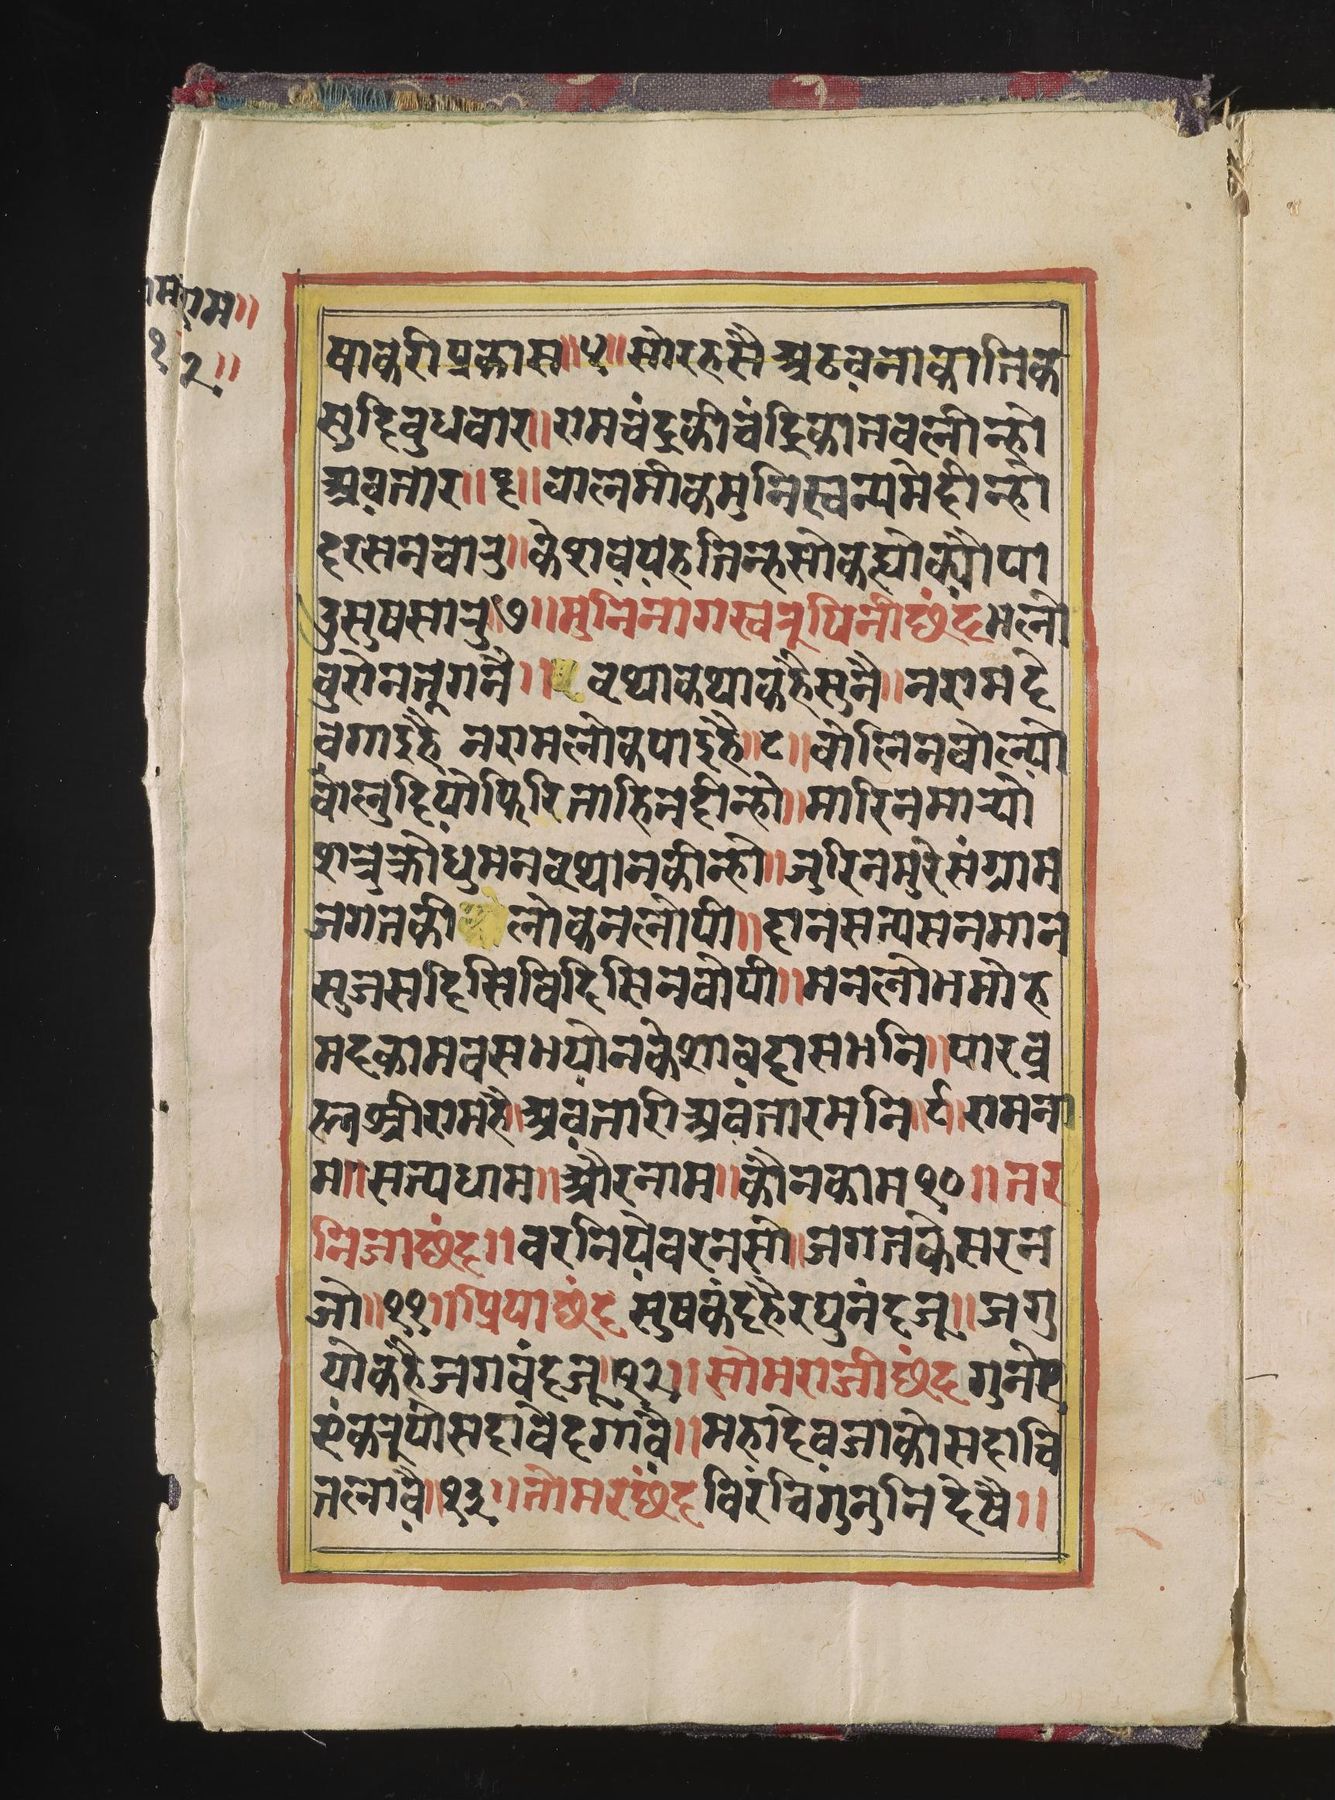 राम॥
२॥
षाकरीप्रकास॥५॥सोरहसैअठवनाकातिक
सुदिबुधवार॥रामचंद्रकीचंद्रिकातबलीन्हो
अवतार॥६॥वालमीकमुनिस्वन्पमेदीन्हौ
दरसनचारु॥केशवयहतिन्हसोकह्योक्यौपा
उसुषसारु७॥मुनिनागस्वरूपिनीछंदभलो
वुरोनतूगनै॥वृथाकथाकहैसुनै॥नरामदे
वगाइहै नरामलोकपाइहै॥८॥बोलिनबोल्यो
वोलुदियोफिरिताहिनदीन्हो॥मारिनमार्‍यो
शत्रुक्रोधुमनवृथानकीन्हो॥जुरिनमुरेसंग्राम
जगतकी लोकनलोपी॥दानसत्यसनमान
सुजसदिसिविदिसिनवोपी॥मनलोभमोह
मदकामवसभयोनकेशवदासभनि॥पारब्र
ह्मश्रीरामहै॥अवतारीअवतारमनि॥९॥रामना
म॥सत्यधाम॥औरनाम॥कौनकाम१०॥तर
निजाछंद॥वरनिवेवरनसो॥जगतकेसरन
जो॥११॥प्रियाछंद सुषकंदहैरघुनंदजू॥जगु
योकहैजगवंदजू॥१२॥सोमराजीछंद गुनोए
एकरूपोसदावेदगावै॥महादेवजाकोसदाचि
तलावै॥१३॥तोमरछंद विरंचिगुनुनिदेषै॥